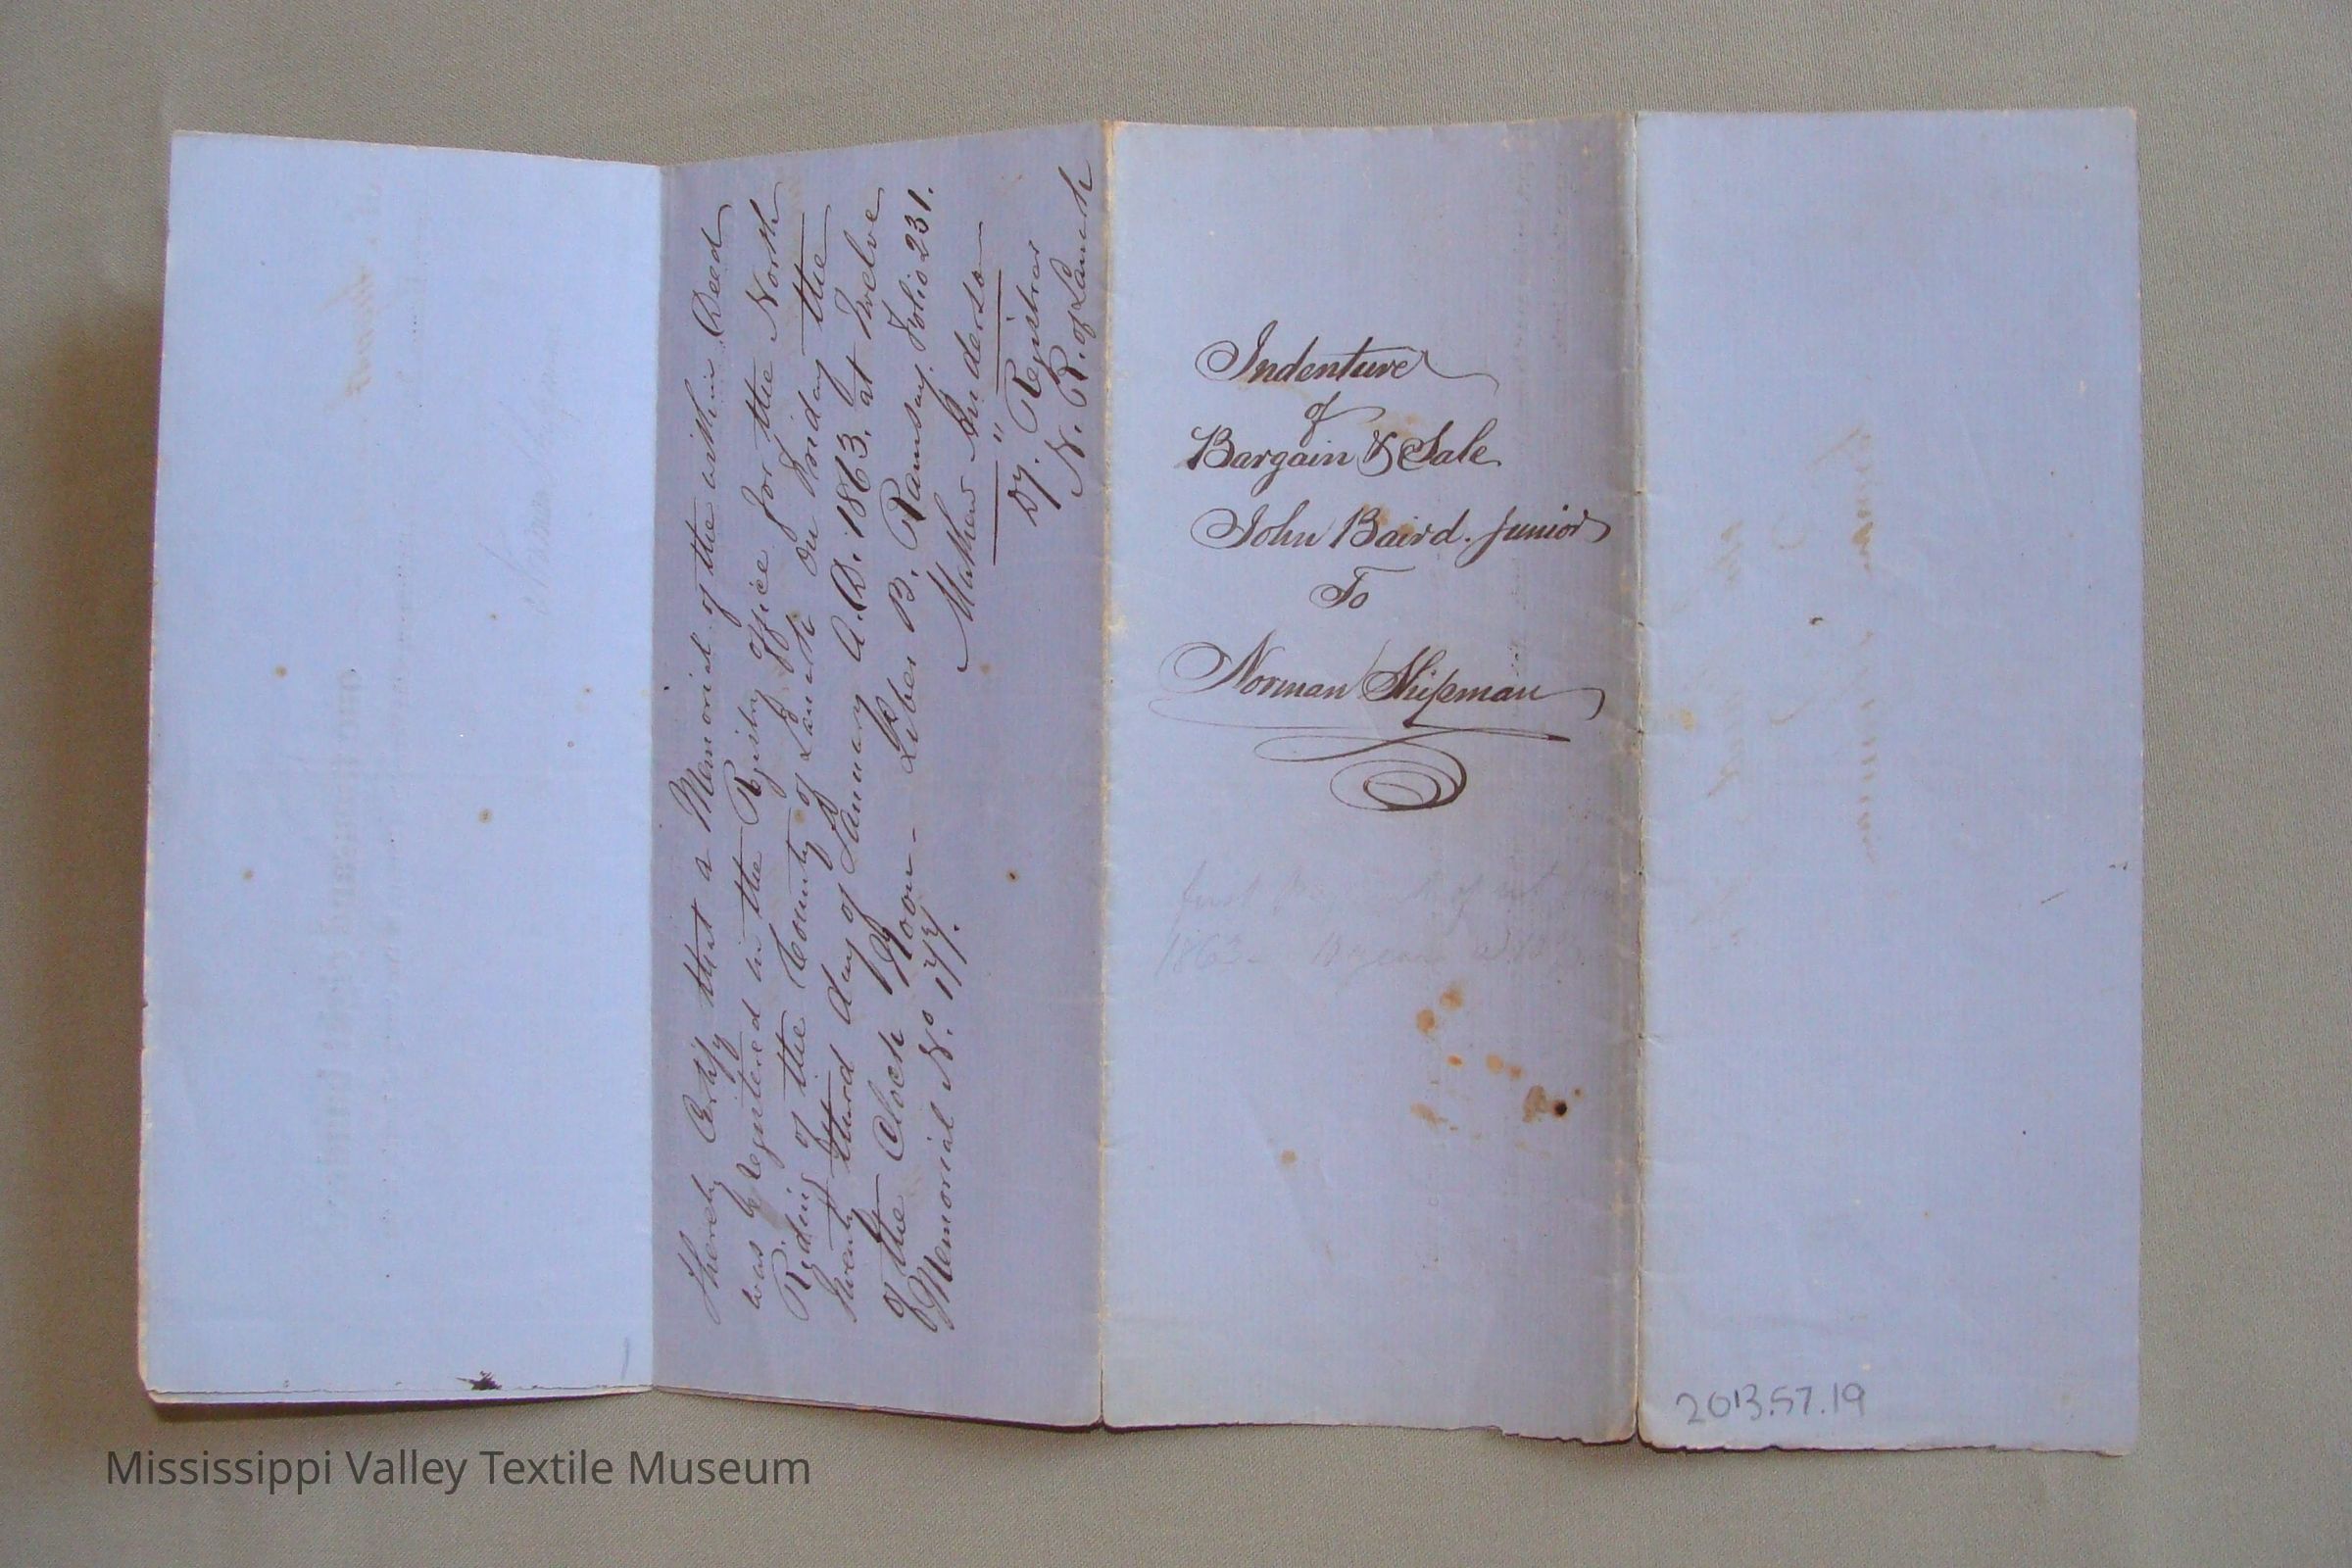 I hereby Certify that a Memorial of the within Deed
was Registered in the Registry office for the North
Riding of the County of Lanark on Friday the
Twenty third day of January A.D. 1863. at Twelve
of the Clock Noon - Liber B. Ramsay. Folio 231.
Memorial No. 177.
Mathew Anderson
Dy. Registrar
N. R. of Lanark
Indenture
of
Bargain & Sale
John Baird. Junior
To
Norman Shipman
first
1863-
2013.57.19
Mississippi Valley Textile Museum